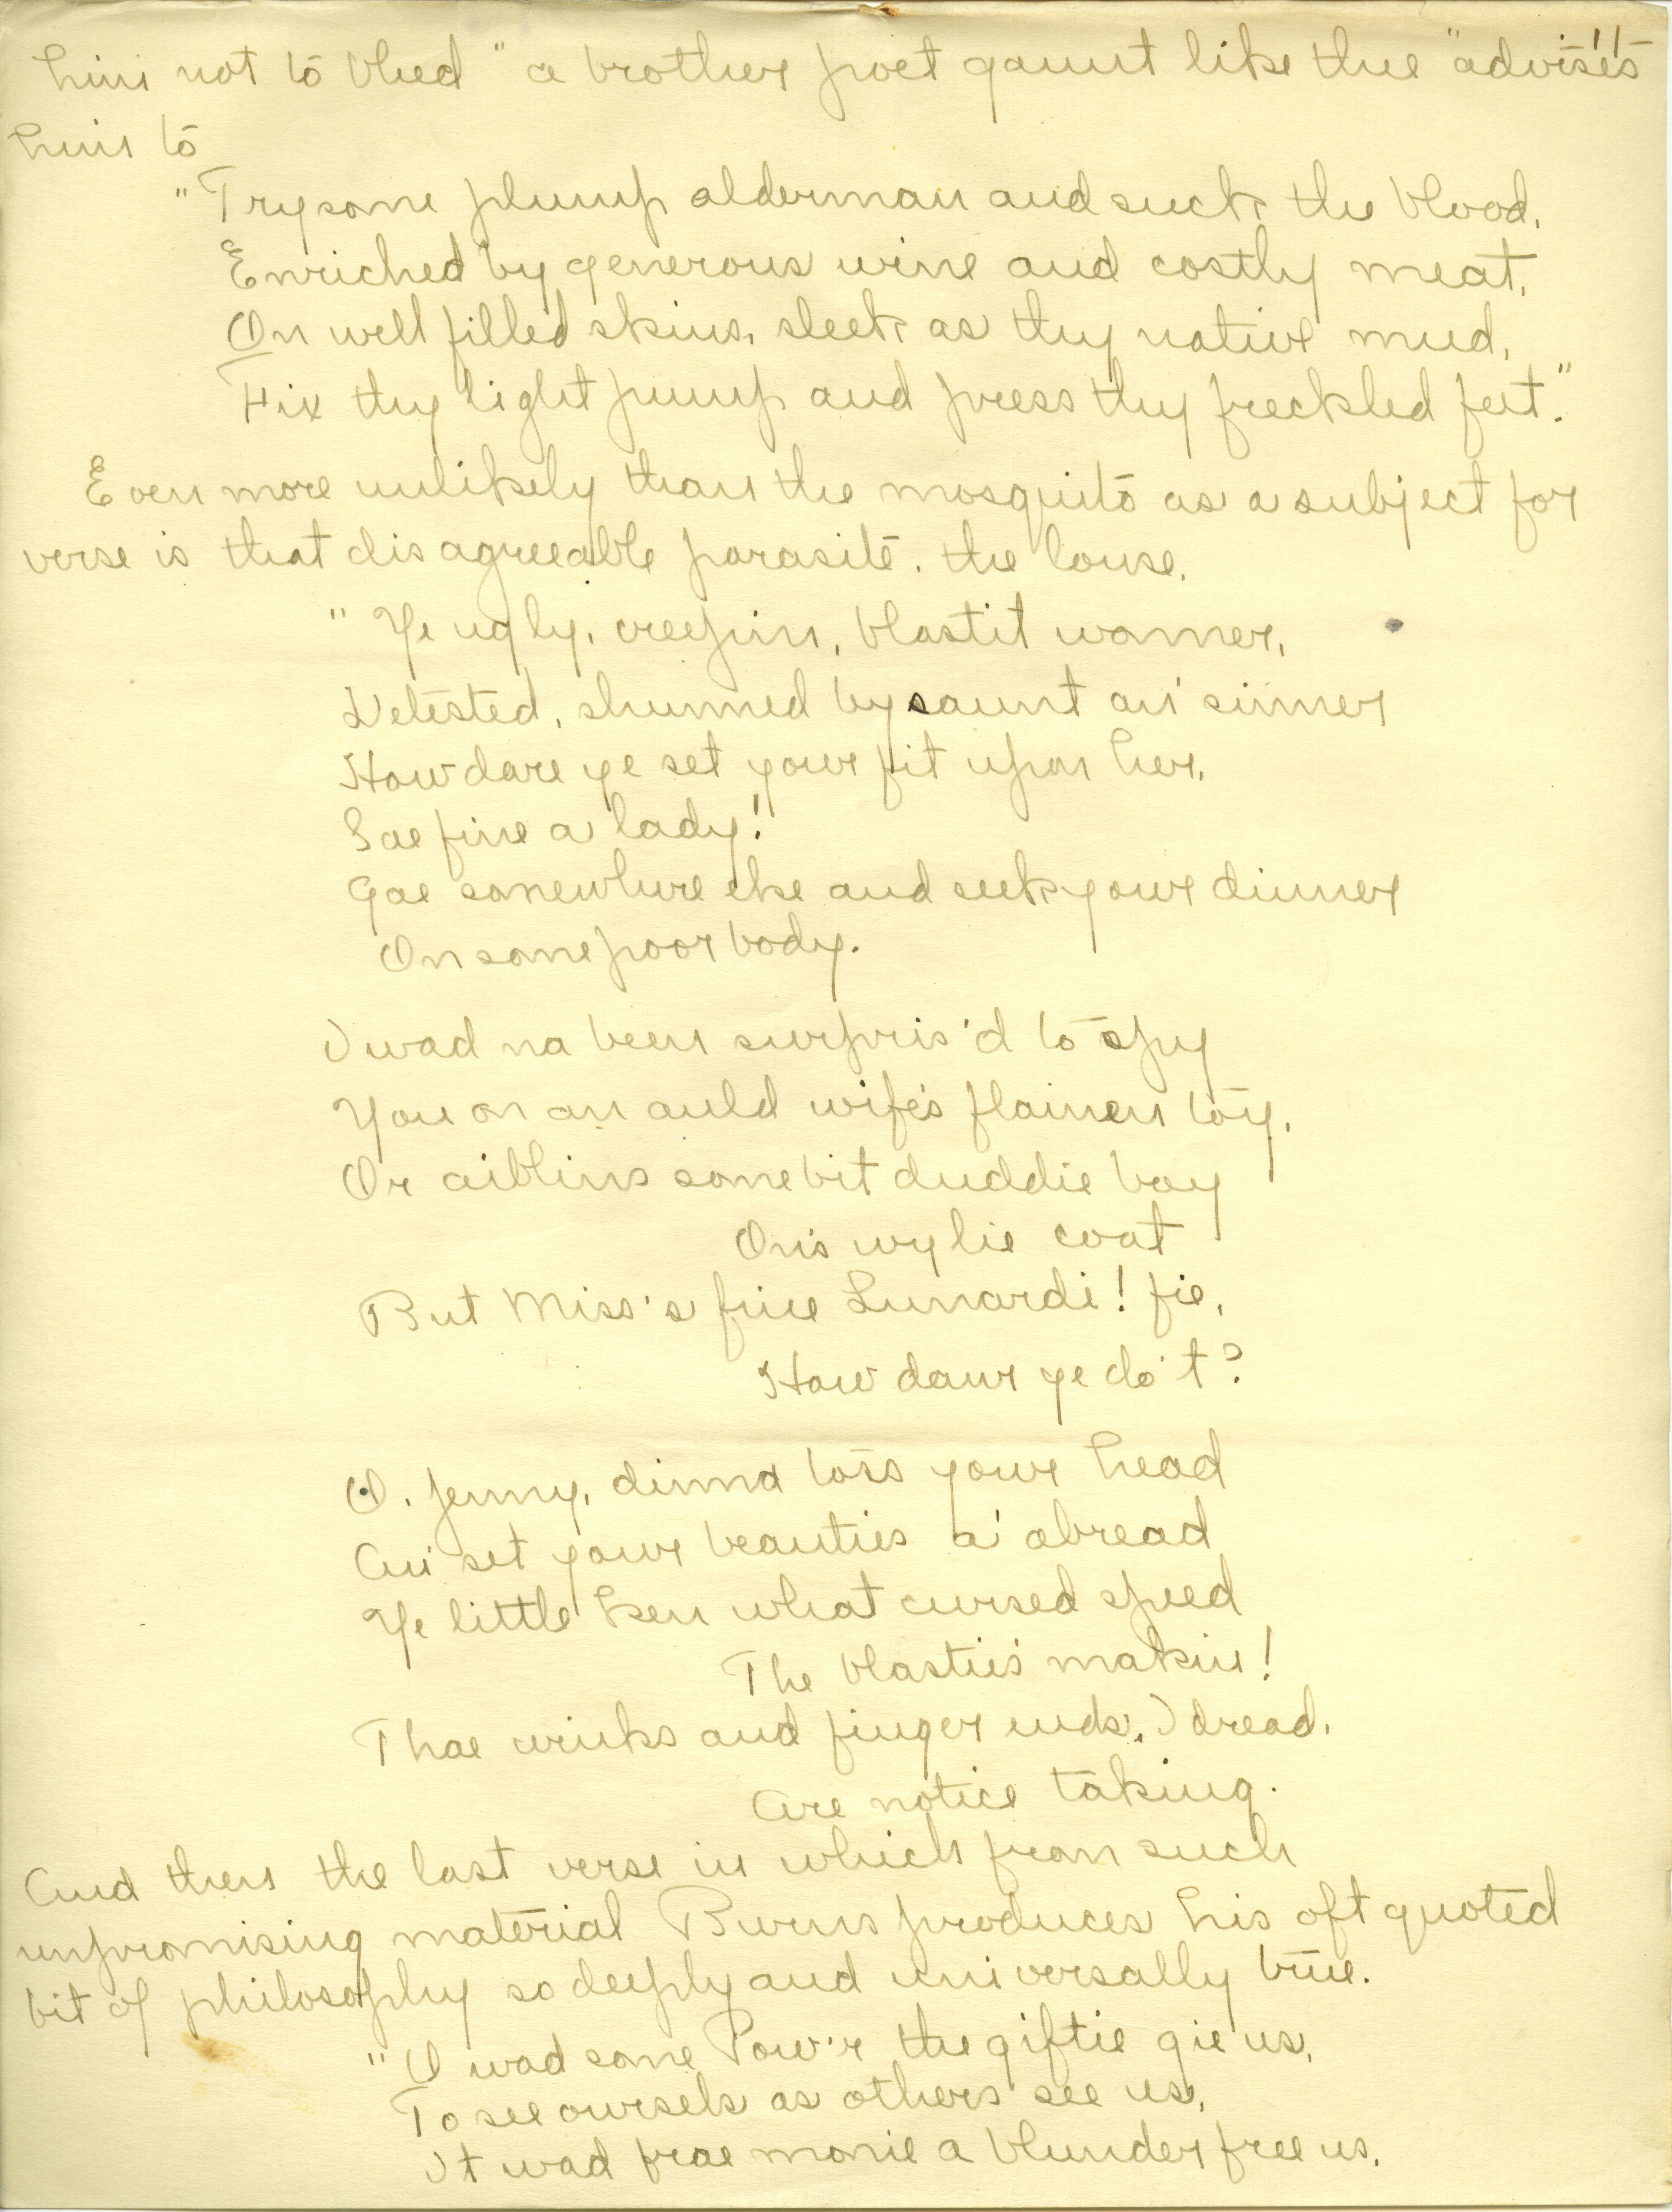 him not to bleed "a brother poet gaunt like thee "advises
him to
"Try some plump alderman and suck the blood,
Enriched by generous wine and costly meat,
On well filled skins, sleek as thy native mud,
Fix thy light pump and press thy freckled feet."
Even more unlikely than the mosquito as a subject for
verse is that disagreeable parasite, the louse.
"Ye ugly, creepin, blastit wonner,
Detested, shunned by saunt an' sinner
How dare ye set your fit upon her,
Sae fine a lady!
Gae somewhere else and seek your dinner
On some poor body.
I wad na been surpris'd to spy
You on an auld wife's flainen toy,
Or aiblins some bit duddie boy
On's wylie coat
But Miss's fine Lunardi! fie,
How daur ye do't?
O, Jenny, dinna toss your head
An' set your beauties a' abread
Ye little ken what cursed speed
The blastie's makin!
Thae winks and finger ends, I dread,
Are notice taking.
And then the last verse in which from such
unpromising material Burns produces his oft quoted
bit of philosophy so deeply and universally true.
"O wad some Pow'r the giftie gie us,
To see oursels as others see us,
It wad frae monie a blunder free us,